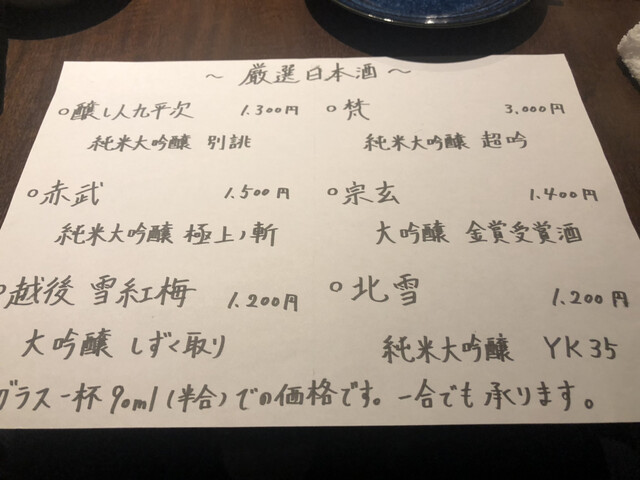 ～ 厳選日本酒 ～
○醸し人九平次 1.300円
純米大吟醸 別誂
○梵 3.000円
純米大吟醸 超吟
○赤武 1.500円
純米大吟醸 極上ノ斬
○宗玄 1.400円
大吟醸 金賞受賞酒
○越後 雪紅梅 1.200円
大吟醸 しずく取り
○北雪 1.200円
純米大吟醸 YK35
グラス一杯90ml(半合)での価格です。一合でも承ります。